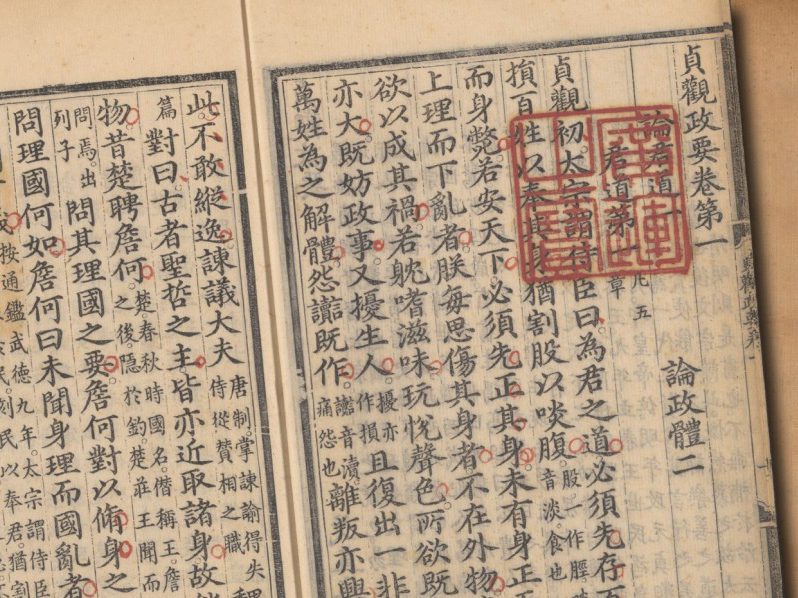 貞觀政要卷第一
論君道一 論政體二
君道第一 凡五章
貞觀初太宗謂侍臣曰為君之道必須先存
損百姓以奉其身猶割股以啖腹 股一作脛 音淡食也
而身斃若安天下必須先正其身未有身正
上理而下亂者朕每思傷其身者不在外物
欲以成其禍若躭嗜滋味玩悅聲色所欲既
亦大既妨政事又擾生人 擾亦作損 且復出一非
萬姓為之解體怨讟既作 讟音瀆痛怨也 離叛亦興
此不敢縱逸諫議大夫 唐制掌諫諭得失侍從贊相之職
篇 對曰古者聖哲之主皆亦近取諸身故能
物昔楚聘詹何 楚春秋時國名僭稱王詹之後隱於釣楚莊王聞而
問焉出列子 問其理國之要詹何對以脩身之
問理國何如詹何曰未聞身理而國亂者
按通鑑武德九年太宗謂侍臣
刻民以奉君猶割